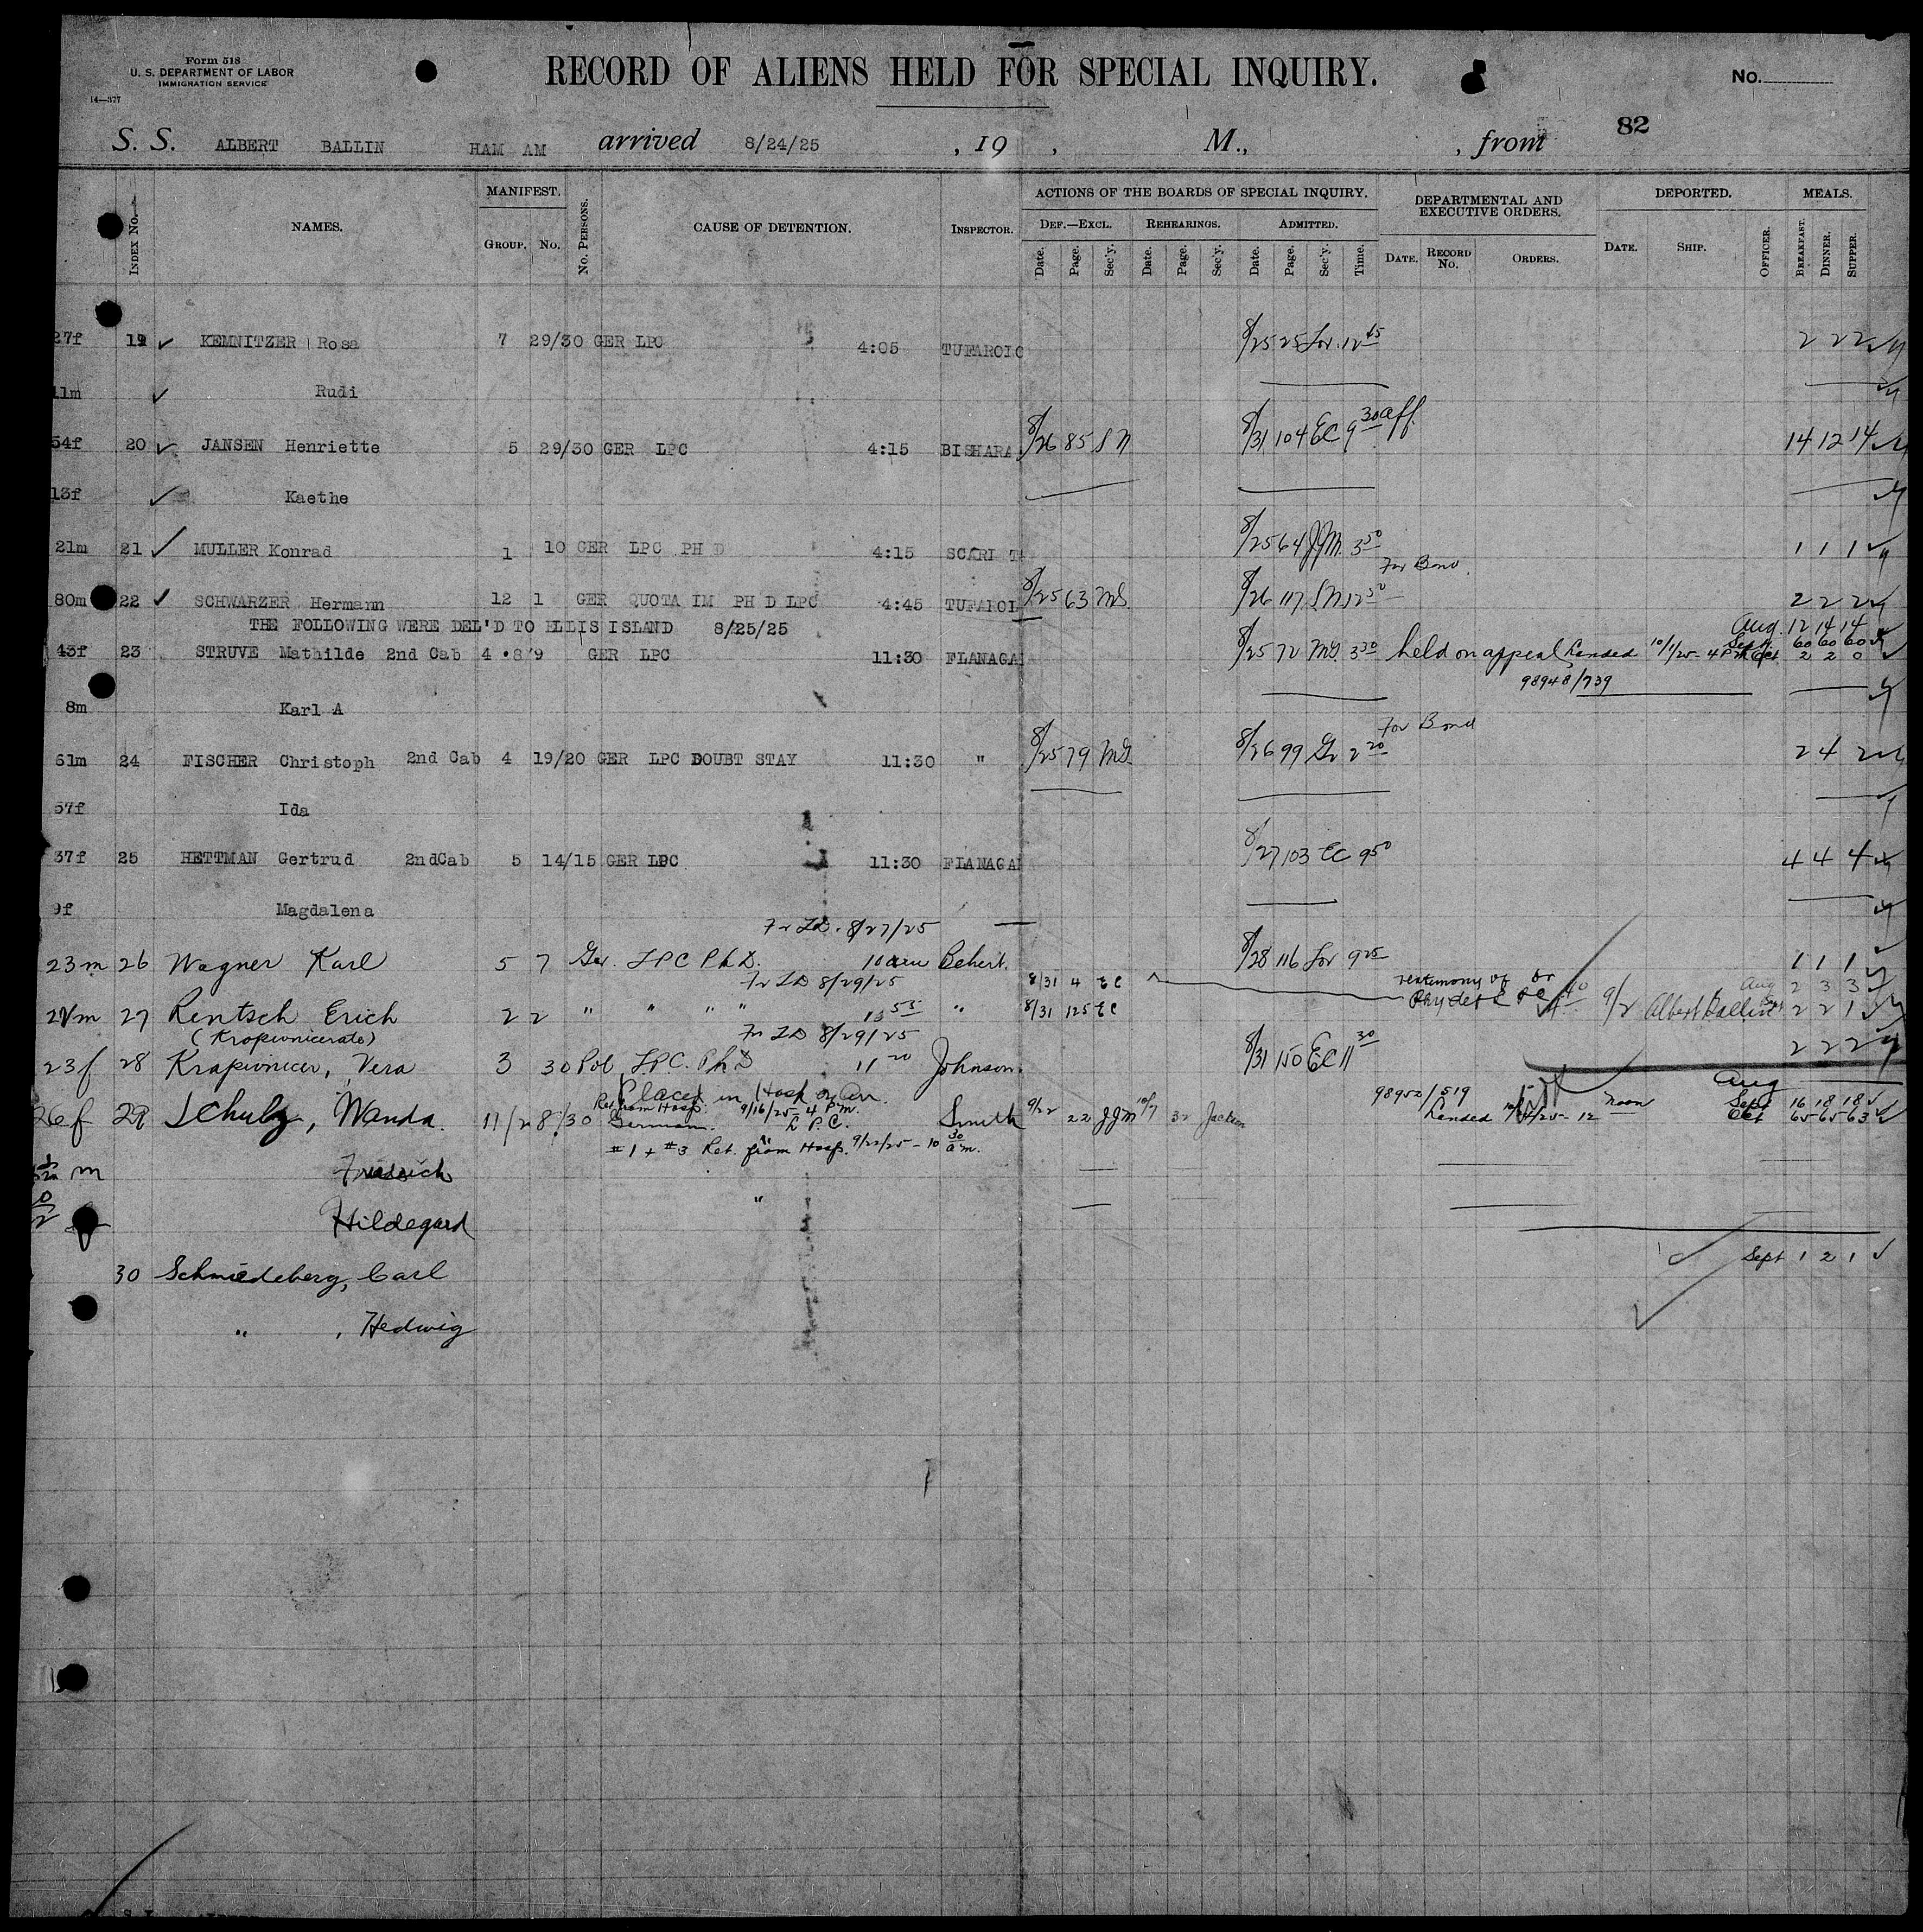 Form 518
U. S. DEPARTMENT OF LABOR
IMMIGRATION SERVICE
14—377
RECORD OF ALIENS HELD FOR SPECIAL INQUIRY.
No.
82
S. S. ALBERT BALLIN HAM AM arrived 8/24/25 , 19 , M., , from
INDEX No. NAMES. MANIFEST. GROUP. No. No. PERSONS. CAUSE OF DETENTION. INSPECTOR. ACTIONS OF THE BOARDS OF SPECIAL INQUIRY. DEF.—EXCL. Date. Page. Sec'y. REHEARINGS. Date. Page. Sec'y. ADMITTED. Date. Page. Sec'y. Time. DEPARTMENTAL AND EXECUTIVE ORDERS. DATE. RECORD No. ORDERS. DEPORTED. DATE. SHIP. OFFICER. MEALS. BREAKFAST. DINNER. SUPPER.
27f 19 KEMNITZER Rosa 7 29/30 GER LPC 4:05 8/25 25 Lov. 12 45 2 2 2
11m Rudi
54f 20 JANSEN Henriette 5 29/30 GER LPC 4:15 BISHARA 8/26 85 S N 8/31 104 EC 9 30 aff. 14 12 14
13f Kaethe
21m 21 MULLER Konrad 1 10 GER LPC PH D 4:15 8/25 64 JJM 3 50 1 1 1
For Bond.
80m 22 SCHWARZER Hermann 12 1 GER QUOTA IM PH D LPC 4:45 TUFAROL 8/25 63 MS. 8/26 117 SN 12 50 2 2 2
THE FOLLOWING WERE DEL'D TO ELLIS ISLAND 8/25/25
Aug. 12 14 14
43f 23 STRUVE Mathilde 2nd Cab 4 8/9 GER LPC 11:30 FLANAGA 8/25 72 3 30 held on appeal Landed 10/1/25 - 4 PM Sept 60 60 60
Oct 2 2 0
98948/739
8m Karl A
For Bond
61m 24 FISCHER Christoph 2nd Cab 4 19/20 GER LPC DOUBT STAY 11:30 " 8/25 79 8/26 99 Gr 2 20 2 4 2
57f Ida
37f 25 HETTMAN Gertrud 2ndCab 5 14/15 GER LPC 11:30 FLANAGA 8/27 103 EC 9 50 4 4 4
9f Magdalena
Fr LD. 8/27/25
23m 26 Wagner Karl 5 7 Ger. LPC Ph.D. 10 am 8/28 116 Lov 9 25 1 1 1
Fr LD 8/29/25 8/31 4 EC testimony of Dr Aug 2 3 3
27 Rentsch Erich 2 2 " " " " " 8/31 125 EC 9/2 Albert Ballin Sept 2 2 1
Fr LD 8/29/25
23f 28 Krapivnicer, Vera 3 30 Pol. LPC. Ph D 11 20 Johnson. 8/31 150 EC 11 30 2 2 2
Placed in Hosp on Arr. 98952/519 Aug
Ret from Hosp. 9/16/25 - 4 P.m. noon Sept 16 18 18
26f 29 Schulz, Wanda. 11/2 8/30 German. L P C. Smith 9/22 22 JJM 10/7 32 Jackson Landed 12 Oct 65 65 63
#1 + #3 Ret. from Hosp. 9/22/25 - 10 30 a.m.
m "
Hildegard "
Sept 1 2 1
30 Schmiedeberg, Carl
" , Hedwig